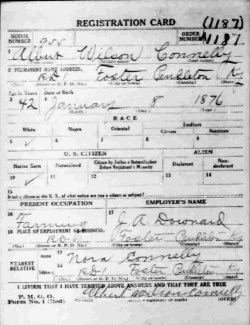 REGISTRATION CARD (1187)
SERIAL NUMBER 900 ORDER NUMBER 1187
Albert Wilson Connelly
2 PERMANENT HOME ADDRESS:
RD1 Foster Pendleton Ky
Age in Years Date of Birth
42 January 8 1876
RACE
White Negro Oriental Indian
Citizen Noncitizen
U. S. CITIZEN ALIEN
Native Born Naturalized Citizen by Father's Naturalization Before Registrant's Majority Declarant Non-declarant
10 11 12 13 14
15
If not a citizen of the U. S., of what nation are you a citizen or subject?
PRESENT OCCUPATION EMPLOYER'S NAME
Farming J A Downard
18 PLACE OF EMPLOYMENT OR BUSINESS:
RD1 Foster Pendleton Ky
NEAREST RELATIVE
Nora Connelly
RD1 Foster Pendleton Ky
I AFFIRM THAT I HAVE VERIFIED ABOVE ANSWERS AND THAT THEY ARE TRUE
P. M. G. O.
Form No. 1 (Red) Albert Wilson Connelly